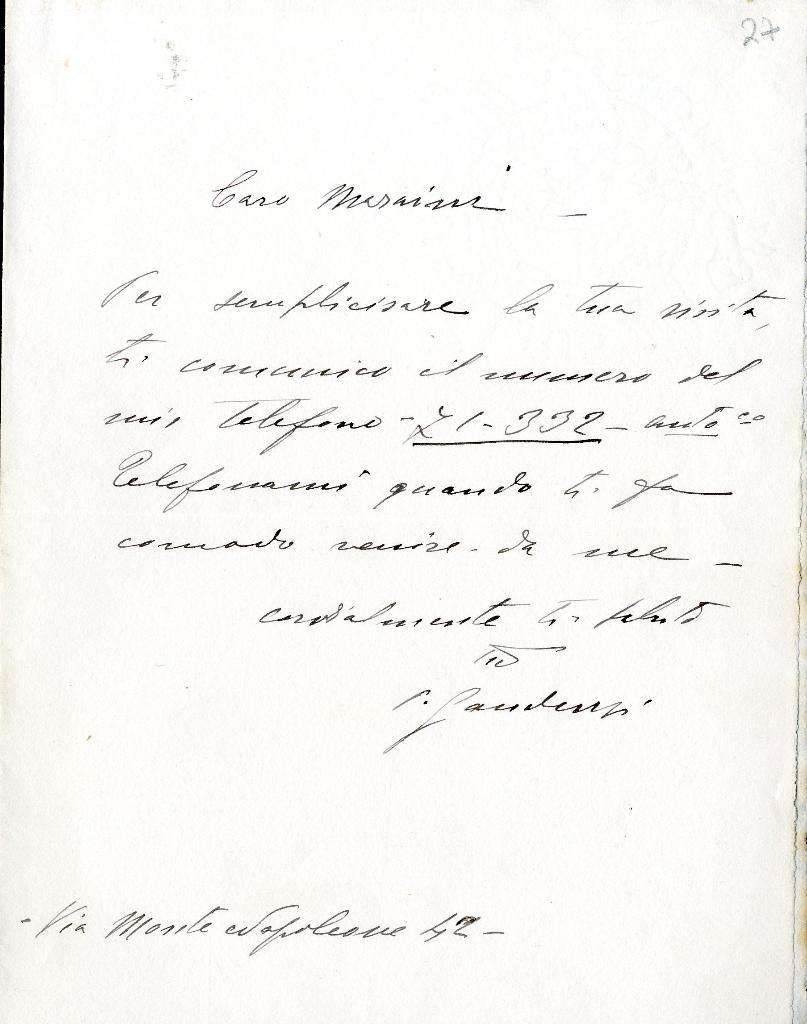 27
Caro Maraini –
Per semplicisare la tua visita,
ti comunico il numero del
mio telefono - 71-332 – autoco
Telefonami quando ti fa
comodo venire da me –
cordialmente ti saluto
tuo
- Via Monte Napoleone 42 –